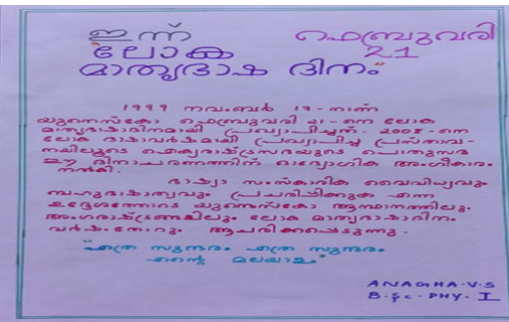 ഇന്ന് ഫെബ്രുവരി 21
"ലോക
മാതൃഭാഷ ദിനം"
1999 നവംബർ 17-നാണ്
യുനെസ്കോ ഫെബ്രുവരി 21-നെ ലോക
മാതൃഭാഷാദിനമായി പ്രഖ്യാപിച്ചത്. 2008-നെ
ലോക ഭാഷാവർഷമായി പ്രഖ്യാപിച്ച പ്രസ്താവ-
നയിലൂടെ ഐക്യരാഷ്ട്രസഭയുടെ പൊതുസഭ
ഈ ദിനാചരണത്തിന് ഔദ്യോഗിക അംഗീകാരം
നൽകി.
ഭാഷാ സംസ്കാരിക വൈവിധ്യവും
ബഹുഭാഷാത്വവും പ്രചരിപ്പിക്കുക എന്ന
ഉദ്ദേശത്തോടെ യുണെസ്കോ ആസ്ഥാനത്തിലും
അംഗരാഷ്ട്രങ്ങളിലും ലോക മാതൃഭാഷാദിനം
വർഷംതോറും ആചരിക്കപ്പെടുന്നു.
"എത്ര സുന്ദരം എത്ര സുന്ദരം
എന്റെ മലയാളം"
ANAGHA.V.S
B.Sc.PHY.I